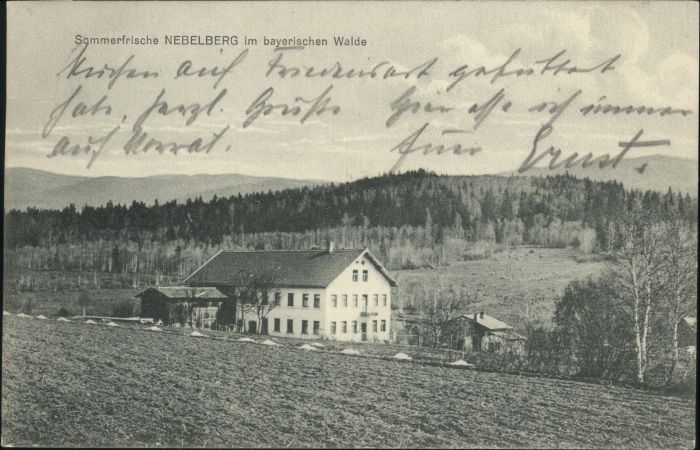 Sommerfrische NEBELBERG im bayerischen Walde
auf Friedensart gefuttert
habe, herzl. Grüße. Hier esse ich immer
auf Vorrat. Euer Ernst.